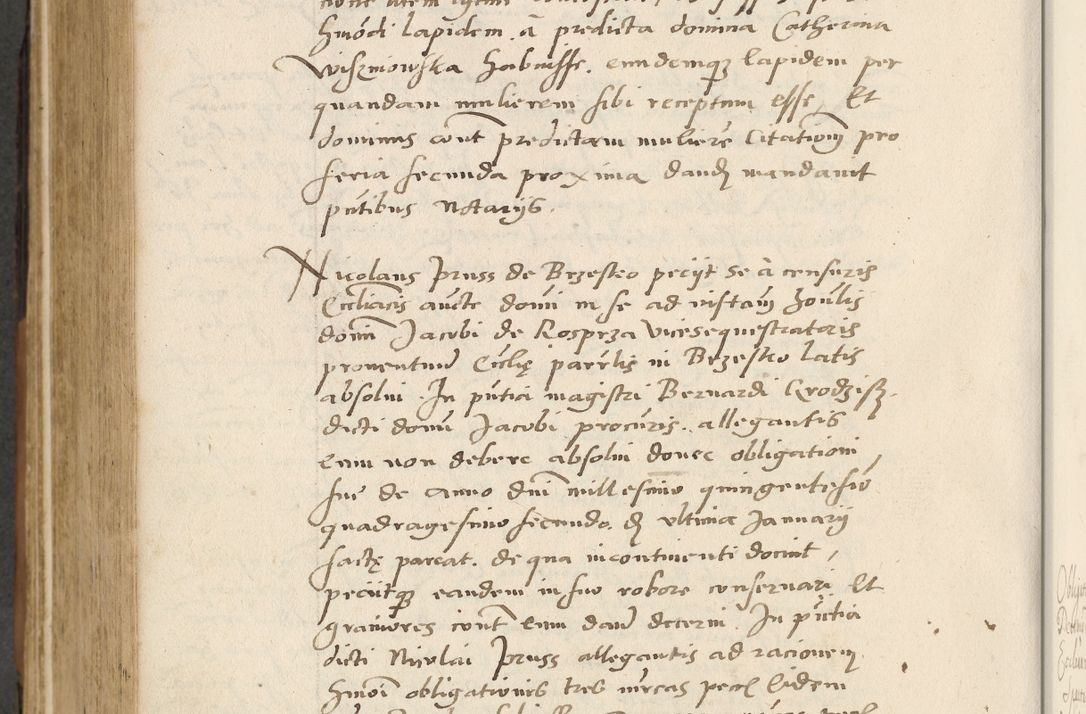 hmodi lapidem a predicta domina Catherina
Wiszniowska habuisse. eundemq lapidem per
quandam mulierem sibi receptum esse, Et
dominus cont predictam muliere Citationem pro
feria secunda proxima dand mandavit
pntibus Notarijs.
Nicolaus Pruss de Brzesko pecijt se a censuris
Ecclesiacis aucte domi in se ad instam honlis
domi Jacobi de Rosprza Vicesequestratoris
proventuu Ecclie parrlis in Brzesko latis
absolui. In pntia magistri Bernardi Grodzisz.
dicti domi Jacobi procuris. allegantis
Eum non debere absolui donec obligationi
sue de anno dni millesimo quingentesio
quadragesimo secundo. d ultima Januarij
facte pareat. de qua incontinenti docuit,
pecijtq eandem in suo robore conservari Et
graviores cont Eum dari decerni. In pntia
dicti Nicolai Pruss allegantis ad racionem
hmoi obligationis tres mrcas pecu Eidem